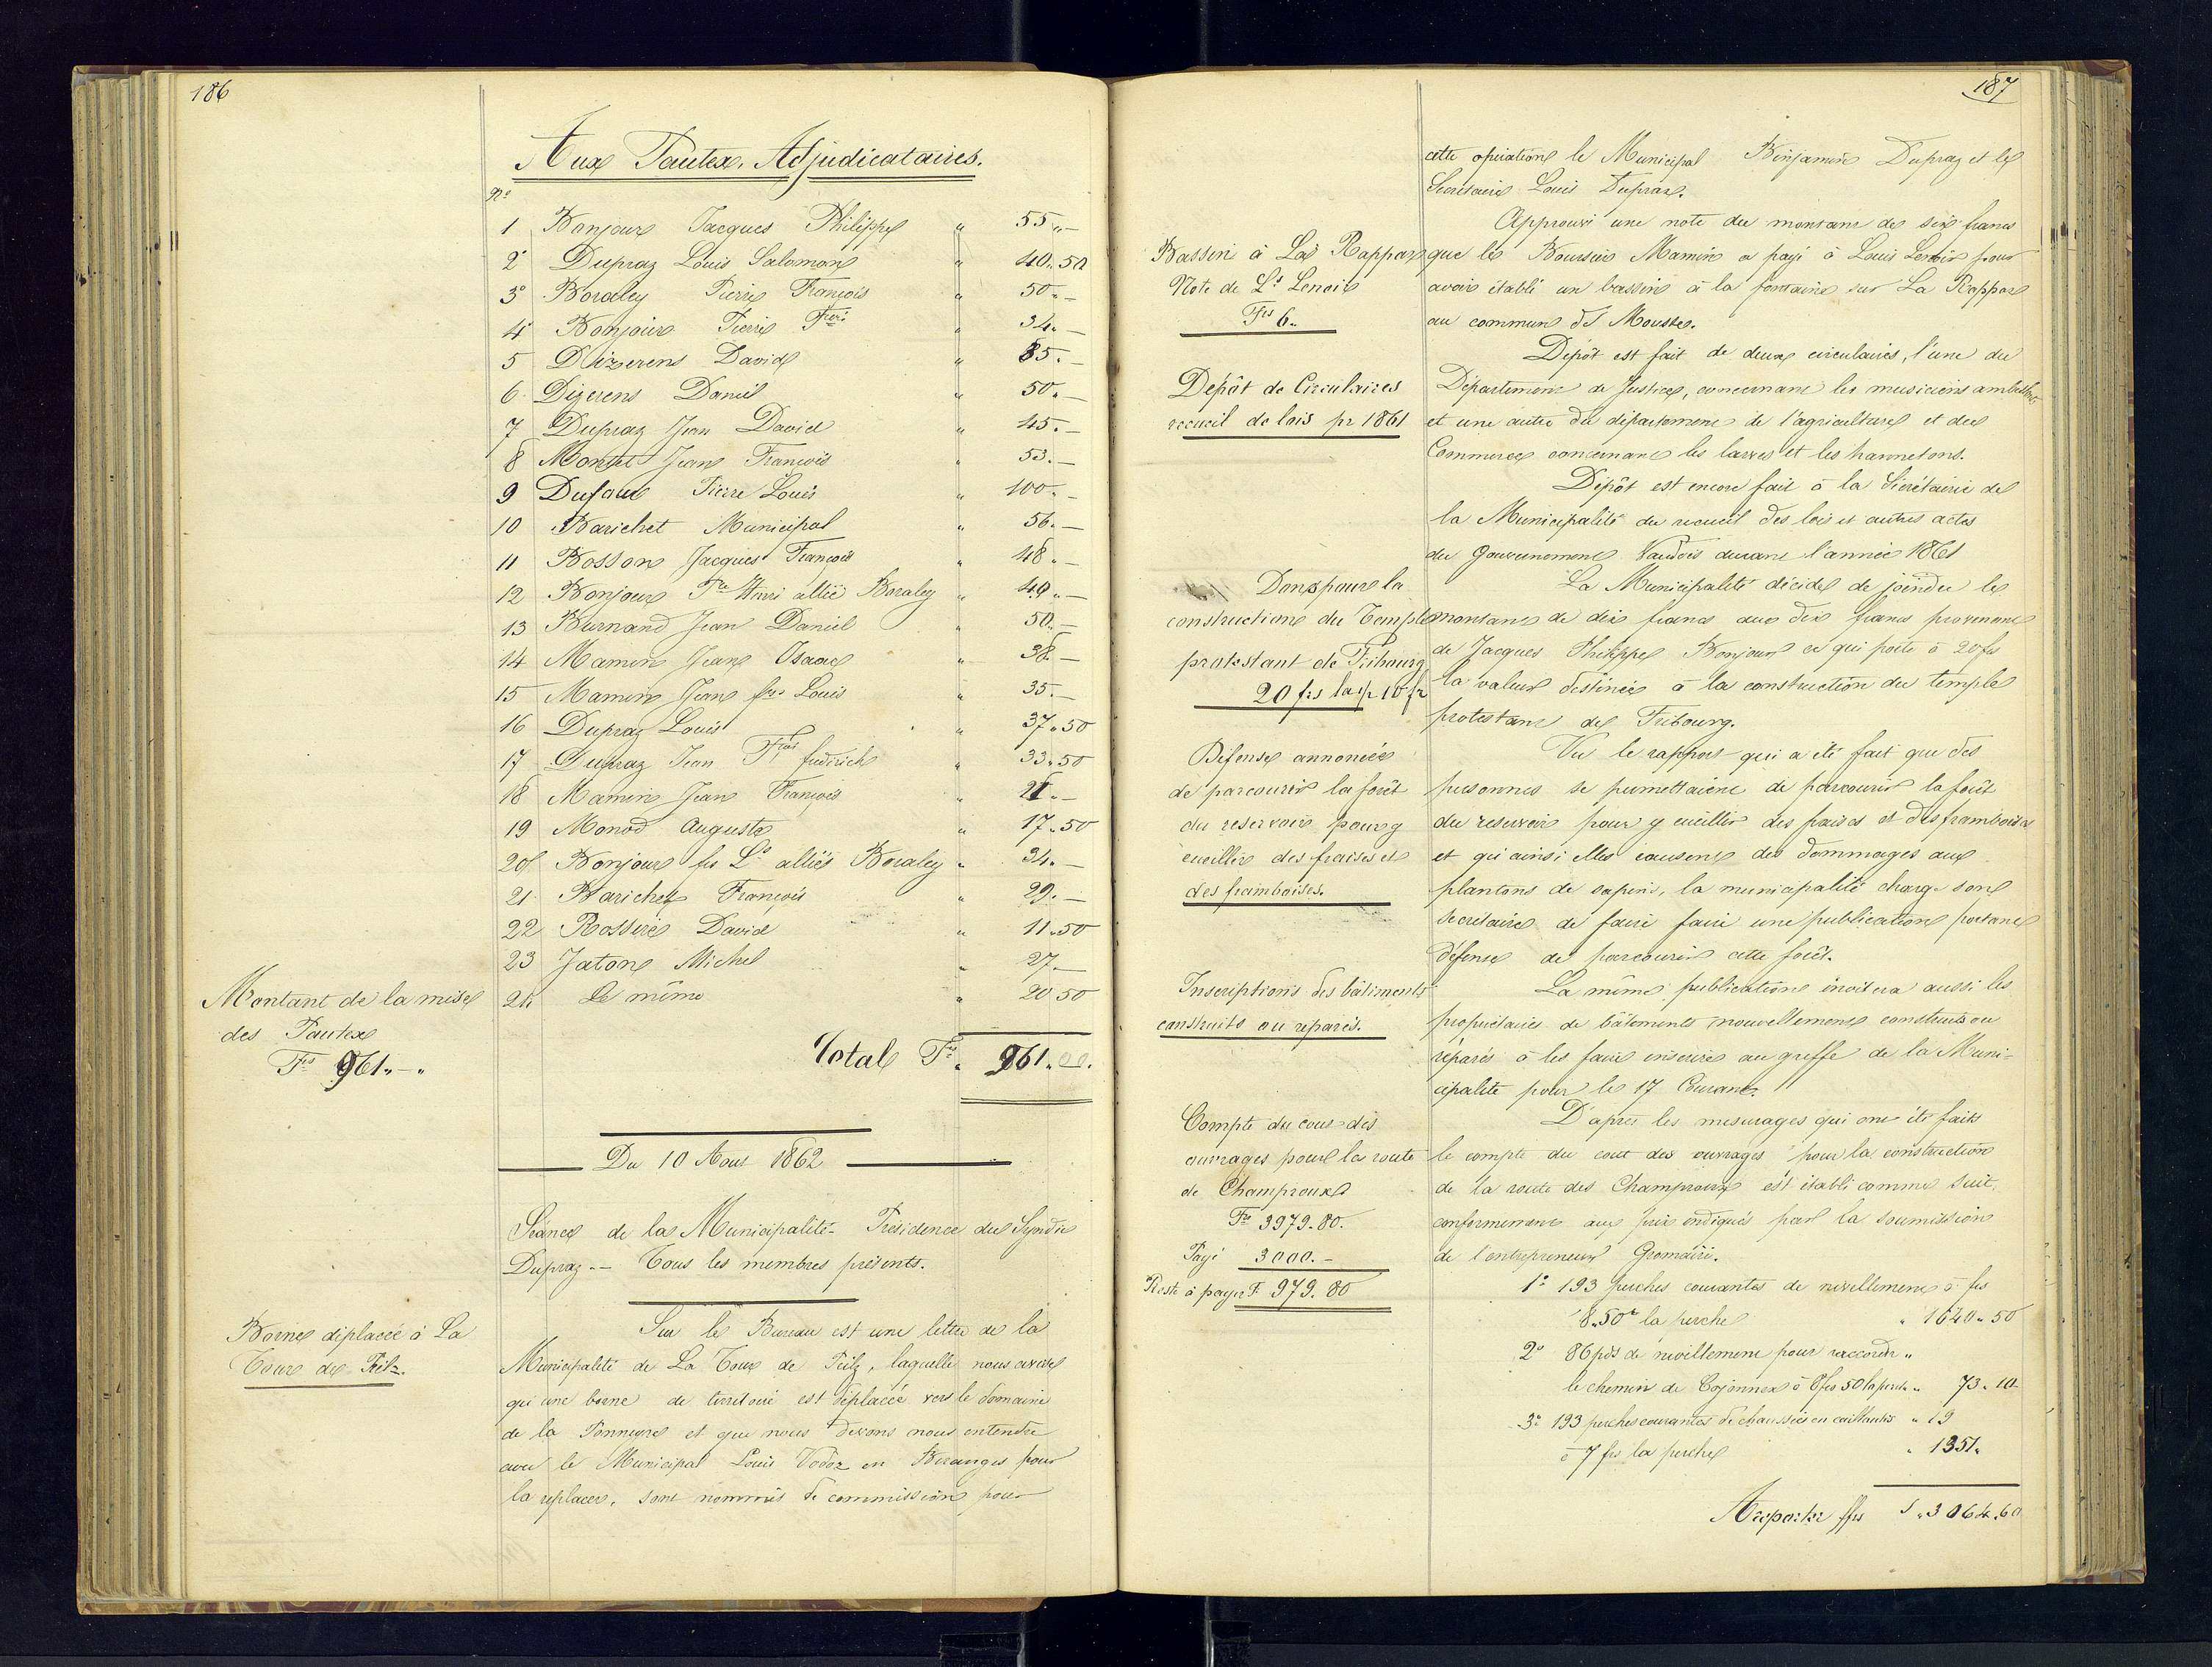 186
Aux Pautex. Adjudicataires.
No
1 Bonjour Jacques Philippe " 55"-
2 Dupraz Louis Salomon " 40"50
3 Boraley Pierre François " 50"-
4 Bonjour Pierre Frcois " 34"-
5 Dizerens David " 85.-
6 Dizerens Daniel " 50"-
7 Dupraz Jean David " 45.-
8 Jean François " 53.-
9 Dufour Pierre Louis " 100"-
10 Barichet Municipal " 56.-
11 Bosson Jacques François " 48"-
12 Bonjour Pre Henri allié Boraley " 40"-
13 Burnand Jean Daniel " 50.-
14 Mamin Jean Isaac " 38.-
15 Mamin Jean fs. Louis " 35.-
16 Dupraz Louis " 37"50
17 Dupraz Jean Frcois fréderich " 33"50
18 Mamin Jean François " 21"-
19 Monod Auguste " 17"50
20 Bonjour fs Ls alliés Boraley " 34.-
21 Barichet François " 29.-
22 Rossire David " 11"50
23 Jaton Michel " 27.-
24 Le même " 20 50
Montant de la mise
des Pautex
Frs 961"-"
Total Frs. 961.00.
Du 10 Aout 1862
Séance de la Municipalité - Présidence du Syndic
Dupraz.- Tous les membres présents.
Borne déplacée à La
Tour de Peilz.
Sur le Bureau est une lettre de la
Municipalité de La Tour de Peilz, laquelle nous avise
qu'une borne de territoire est déplacée vers le domaine
de la et que nous devons nous entendre
avec le Municipal Louis Vodoz en Béranges pour
la replacer, sont nommés de commission pour
187
cette opération le Municipal Benjamin Dupraz et le
Secrétaire Louis Dupraz.
Bassin à La Rappaz
Note de Ls Lenoir
Frs 6"
Approuvé une note du montant de six francs
que le Boursier Mamin a payé à Louis Lenoir pour
avoir établi un bassin à la fontaine sur La Rappaz
au commun
Dépôt de Circulaires
recueil de lois pr 1861
Dépôt est fait de deux circulaires, l'une du
Département de Justice, concernant les musiciens ambulants
et une autre du département de l'agriculture et du
Commerce concernant les larves et les hannetons.
Dépôt est encore fait à la Sécrétairie de
la Municipalité du recueil des lois et autres actes
du Gouvernement Vaudois durant l'année 1861
Dons pour la
construction du Temple
protestant de Fribourg
20 frs 10 fr
La Municipalité décide de joindre le
montant de dix francs aux dix francs provenant
de Jacques Philippe Bonjour ce qui porte à 20 frs
la valeur destinée à la construction du temple
protestant de Fribourg.
Défense annoncée
de parcourir la forêt
du reservoir pour y
cueillir des fraises et
des framboises.
Vu le rapport qui a été fait que des
personnes se permettaient de parcourir la forêt
du reservoir pour y cueillir des fraises et des framboises
et qu'ainsi elles causent des dommages aux
plantons de sapins, la municipalité charge son
secrétaire de faire faire une publication portant
défense de parcourir cette forêt.
Inscriptions des bâtiments
construits ou réparés.
La même publication invitera aussi les
propriétaires de bâtiments nouvellement construits ou
réparés à les faire inscrire au greffe de la Muni-
cipalité pour le 17 Courant.
Compte du cout des
ouvrages pour la route
de Champroux
Frs 3979.80.
Payé 3000.-
Reste à payer F. 979.80
D'après les mesurages qui ont été faits
le compte du cout des ouvrages pour la construction
de la route des Champroux est établi comme suit,
conformément aux prix indiqués par la soumission
de l'entrepreneur Gromaire.
1o 193 perches courantes de nivellement à frs
8"50 la perche " 1640"50
2o 86 pds de nivellement pour raccorder "
le chemin de Cojonnex à 8 frs 50 la perche " 73"10
3o 193 perches courantes de chaussées en cailloutis " 19
à 7 frs la perche " 1351"
A reporter ffrs 3064.60